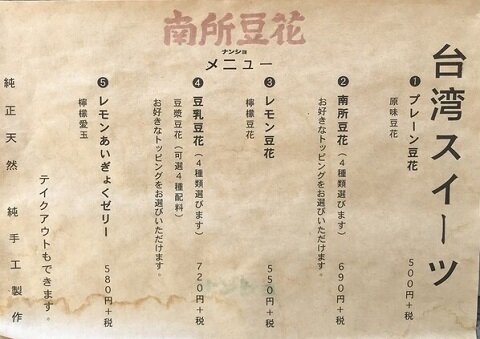 南所豆花
ナンショ
メニュー
台湾スイーツ
❶ プレーン豆花 500円+税
原味豆花
❷ 南所豆花(4種類選びます) 690円+税
お好きなトッピングをお選びいただけます。
❸ レモン豆花 550円+税
檸檬豆花
❹ 豆乳豆花(4種類選びます) 720円+税
豆漿豆花(可選4種配料)
お好きなトッピングをお選びいただけます。
❺ レモンあいぎょくゼリー 580円+税
檸檬愛玉
テイクアウトもできます。
純正天然 純手工製作